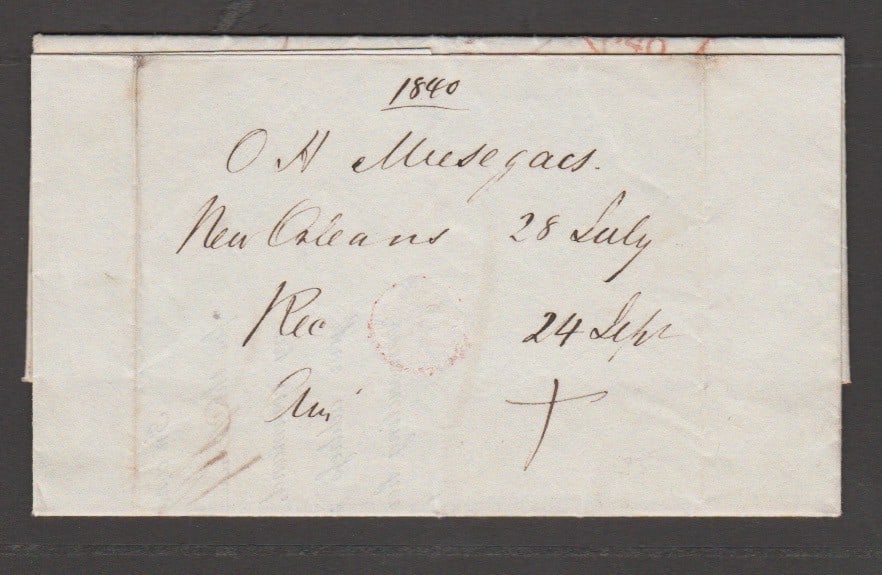 1840
O H Musegaes.
New Orleans 28 July
Rec 24 Sept